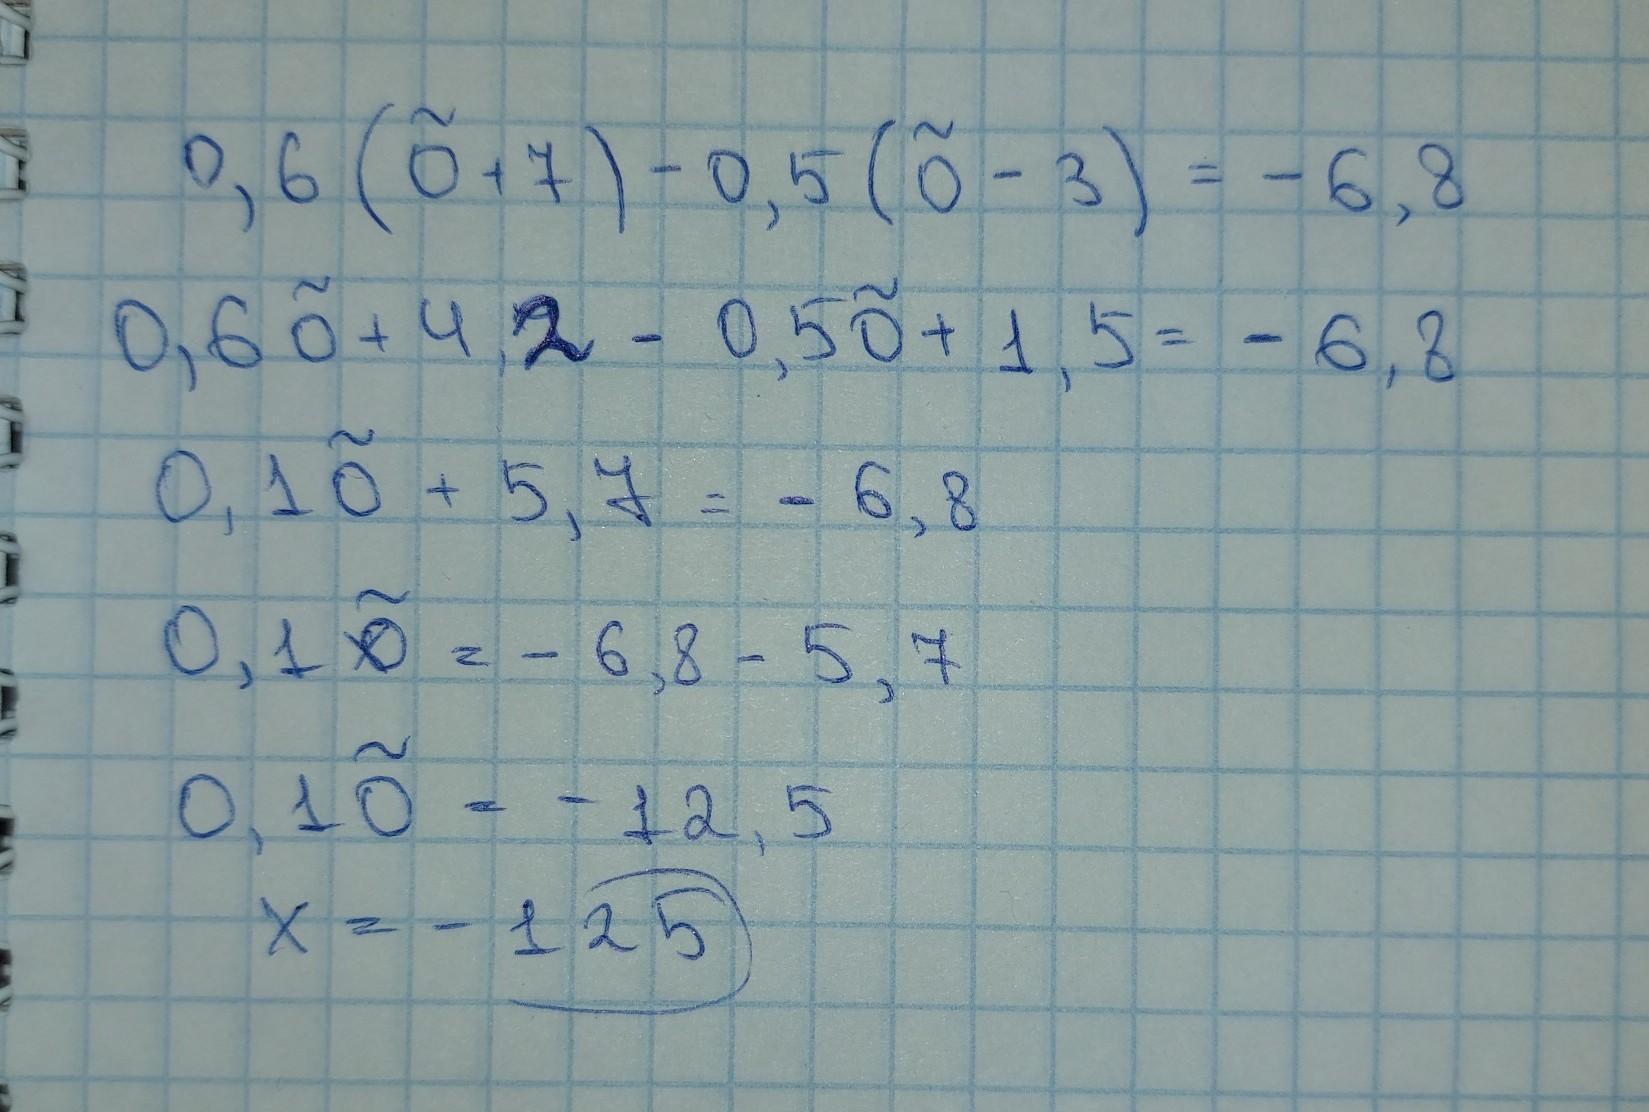 0,6(õ+7)-0,5(õ-3)=-6,8
0,6õ+4,2-0,5õ+1,5=-6,8
0,1õ+5,7=-6,8
0,1õ=-6,8-5,7
0,1õ=-12,5
x=-125